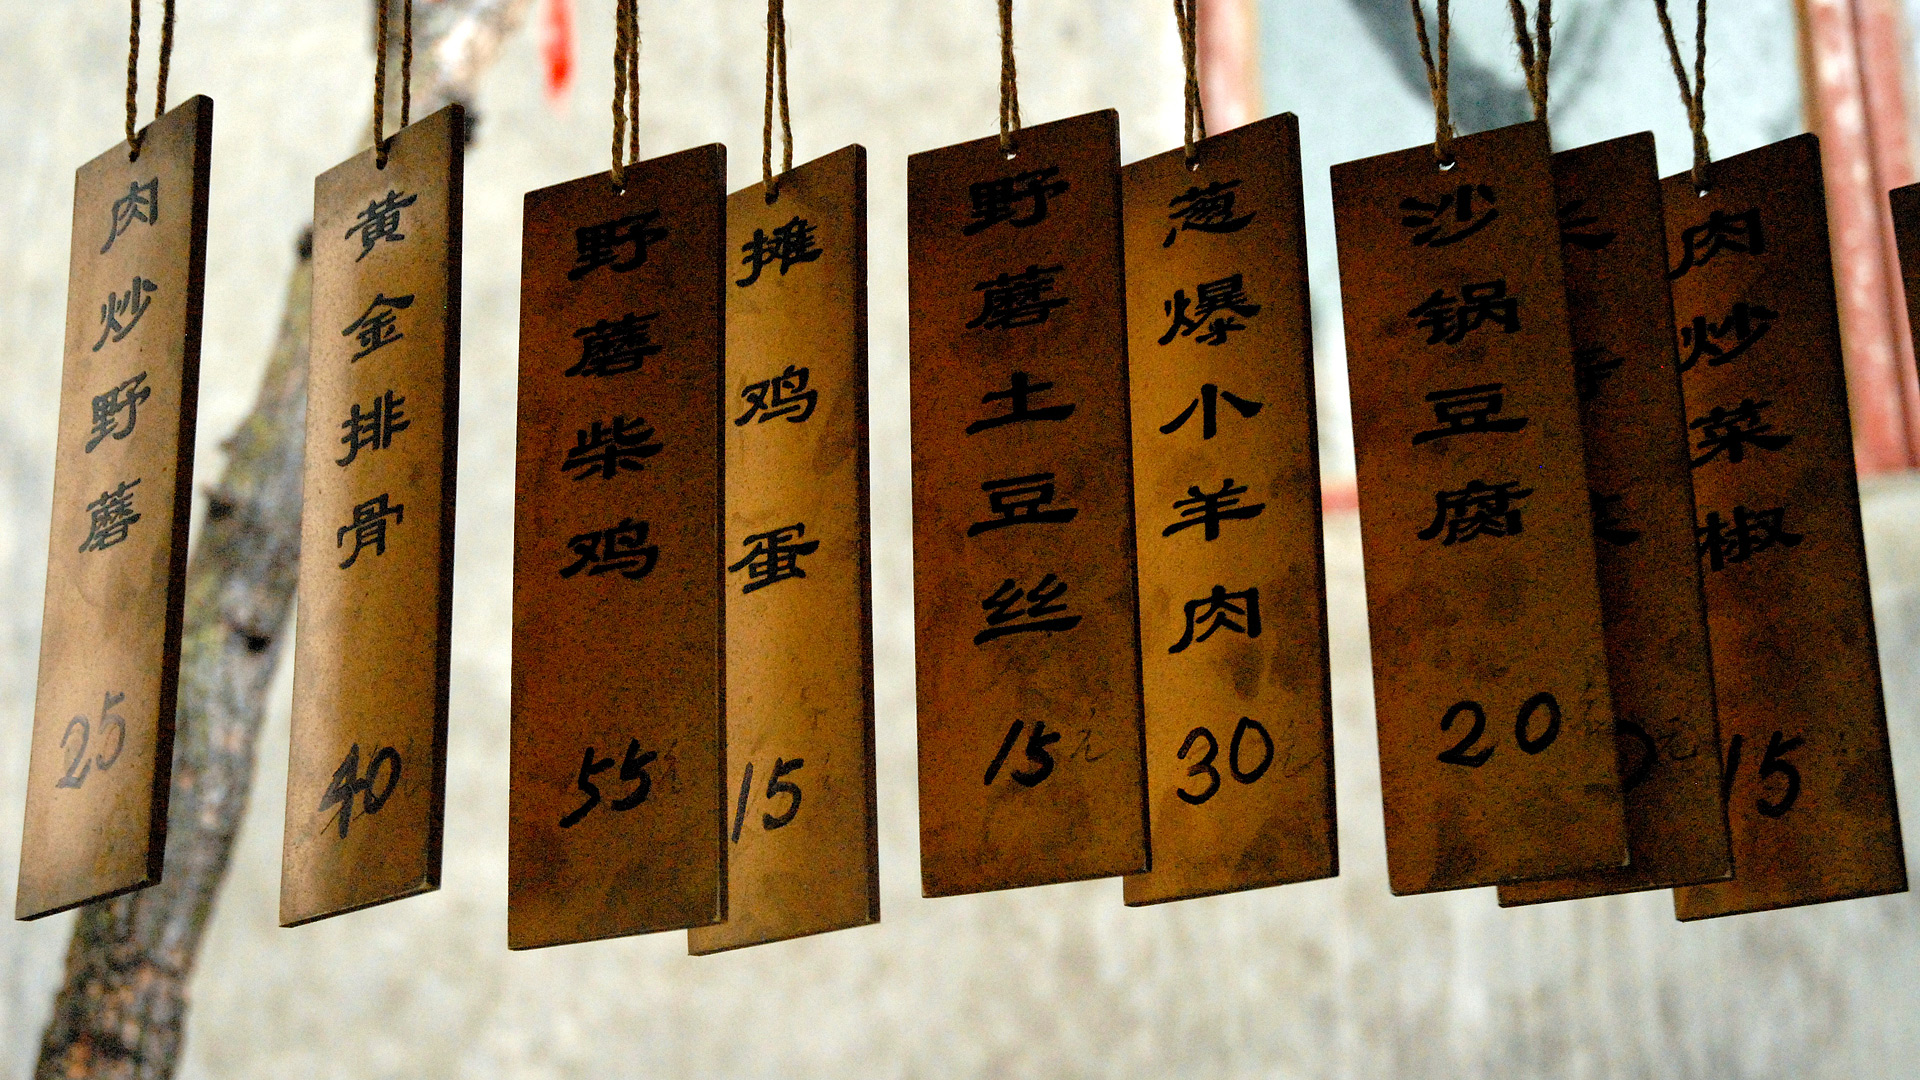 肉炒野蘑
25
黄金排骨
40
野蘑柴鸡
55元
摊鸡蛋
15
野蘑土豆丝
15元
葱爆小羊肉
30元
沙锅豆腐
20元
0元
肉炒菜椒
15